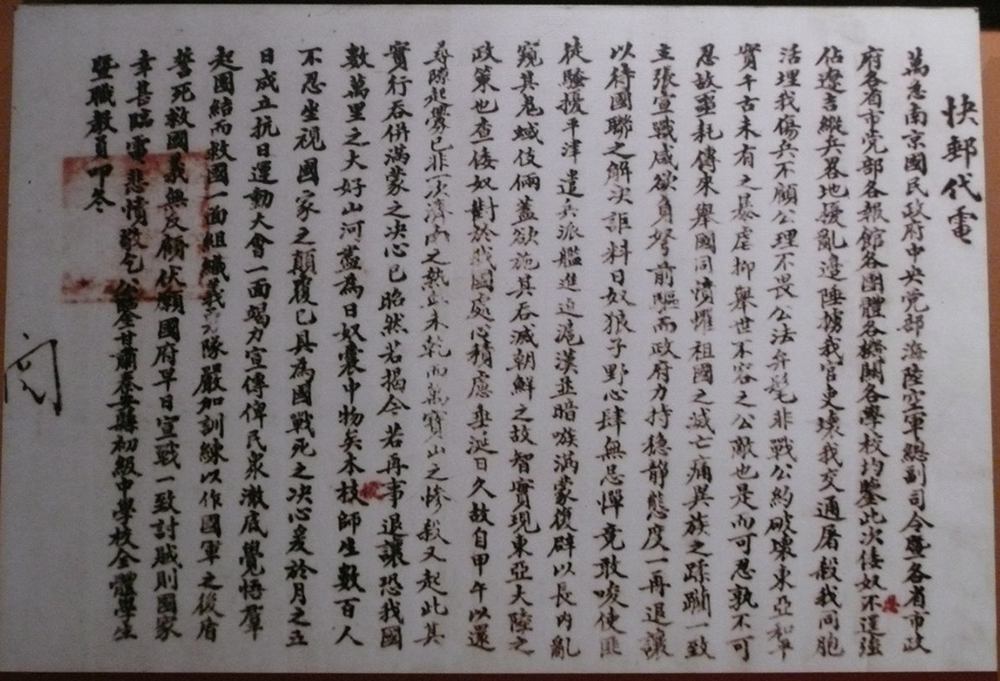 快郵代電
萬急南京國民政府中央党部海陸空軍總副司令暨各省市政
府各省市党部各報館各團體各機關各學校均鑒此次倭奴不遑強
佔遼吉縱兵畧地擾亂邊陲擄我官吏壞我交通屠殺我同胞
活埋我傷兵不顧公理不畏公法弁髦非戰公約破壞東亞和平
實千古未有之暴虐抑舉世不容之公敵也是而可忍孰不可
忍故噩耗傳來舉國同憤懼祖國之滅亡痛異族之蹂躪一致
主張宣戰咸欲負弩前驅而政府力持稳静態度一再退讓
以待國聯之解决詎料日奴狼子野心肆無忌憚竟敢唆使匪
徒騷擾平津遣兵派艦進迫滬漢並暗嗾满蒙復辟以長內亂
窺其鬼蜮伎倆蓋欲施其吞滅朝鮮之故智實現東亞大陸之
政策也查倭奴對於我國處心積慮垂涎日久故自甲午以還
尋隙起釁已非一次濟南之熱血未乾而萬寶山之惨殺又起此其
實行吞併满蒙之决心已昭然若揭今若再事退讓恐我國
數萬里之大好山河盡為日奴囊中物矣本校師生數百人
不忍坐視國家之顛覆已具為國戰死之决心爰於月之五
日成立抗日運動大會一面竭力宣傳俾民衆澈底覺悟羣
起團結而救國一面組織義勇隊嚴加訓練以作國軍之後盾
誓死救國義無反顧伏願國府早日宣戰一致討賊則國家
幸甚臨電悲憤敬乞公鑒甘肅秦安縣初級中學校全體學生
暨職教員叩冬